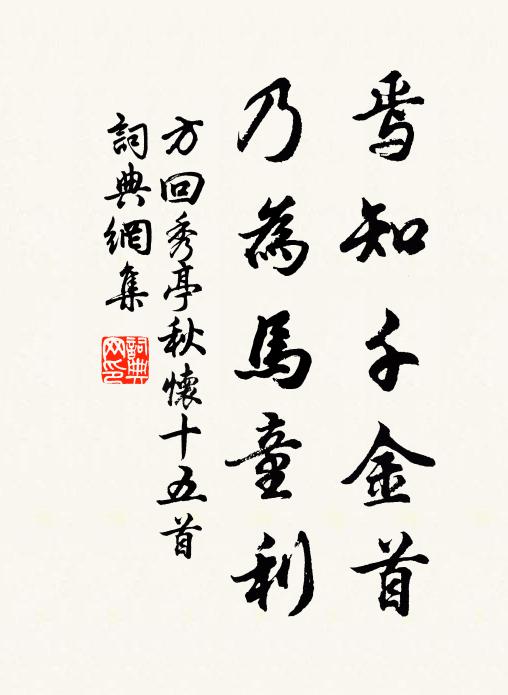 焉知千金首
乃為馬童利
方回秀亭秋懷十五首
詞典網集
詞典網印